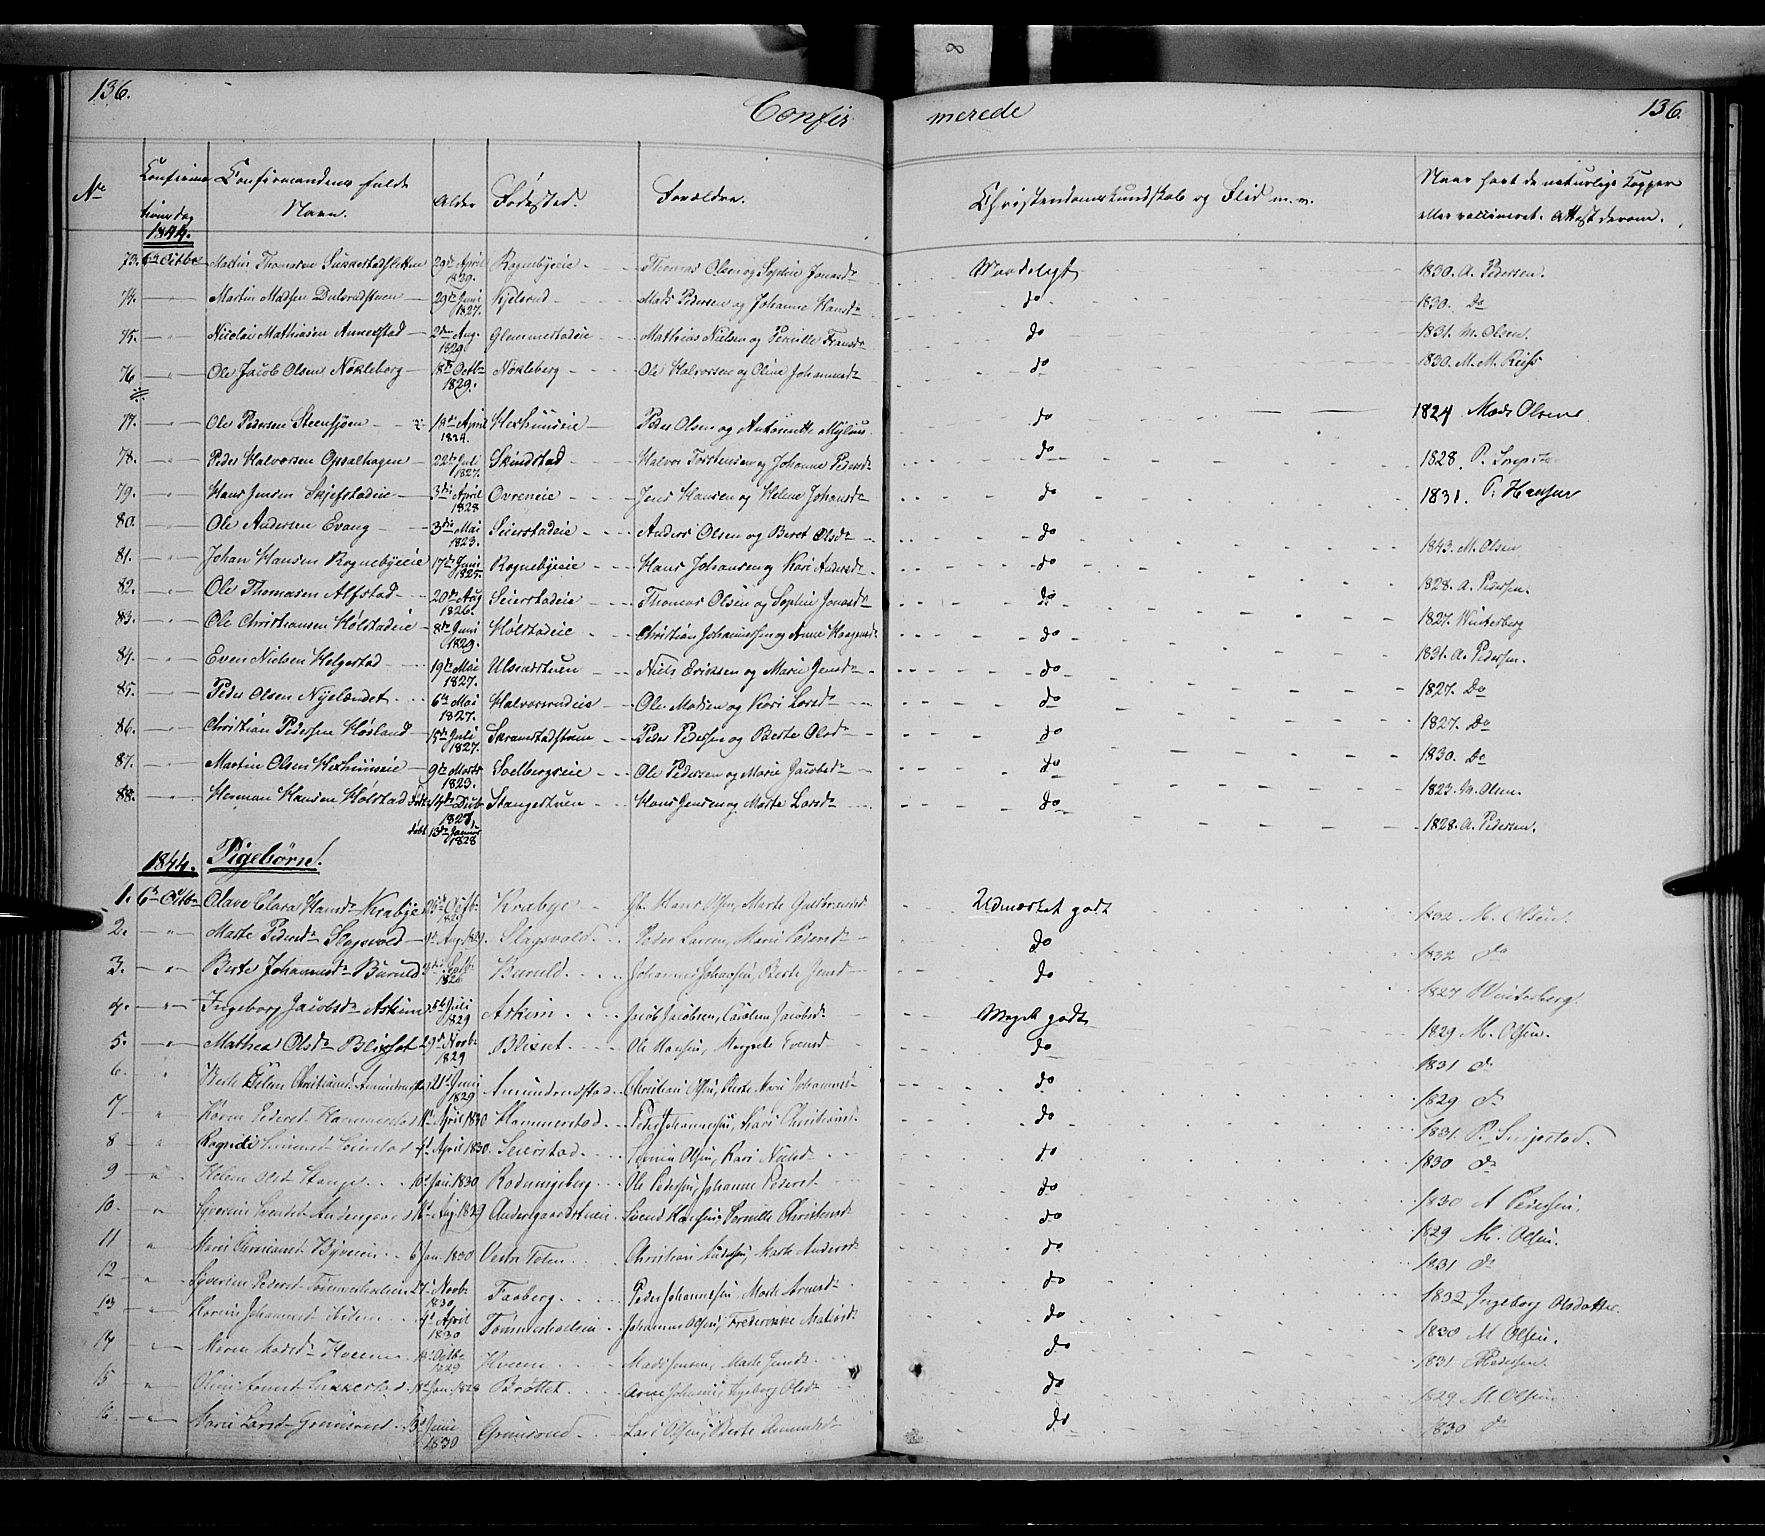 136.
Confir
merede
136.
8
No
Confirma
tions dag
Confirmandens fulde
Navn.
Alder
Fødested.
Forældre.
Christendomskundskab og Flid m. v.
Naar havt de naturlige Kopper
eller vaccineret. Attest derom.
1844.
73. 6te Octbr Martin Thomasen Sukkestadsletten 29de April 1829. Rognebyeie Thomas Olsen og Sophie Jonasdr Maadeligt 1830. A. Pedersen.
74. — " — Martin Madsen 29de Juni 1827. Kjelsrud Mads Pedersen og Johanne Hansdr do 1830. Do
75. — " — Nicolai Mathiasen Annerstad 2den Aug. 1829. Glemmestadeie Mathias Nielsen og Pernille Fransdr do 1831. M. Olsen.
76 — " — Ole Jacob Olsen Nøkleberg 18de Octbr 1829. Nøkleberg Ole Halvorsen og Oline Johannesdr do 1830. M. M.
77. — " — Ole Pedersen Steensjøen April 1824. Hexhuuseie Peder Olsen og Antonette Mylius do 1824 Mads Olsen
78. — " — Peder Halvorsen Opsalhagen 22de Juli 1827. Skindstad Halvor Torstensen og Johanne Pedersdr do 1828. P.
79. — " — Hans Jensen Skjefstadeie 3die April 1828 Ovreneie Jens Hansen og Helene Johansdr do 1831. P. Hansen
80. — " — Ole Andersen Evang 3die Mai 1823. Seierstadeie Anders Olsen og Beret Olsdr do 1843. M. Olsen
81. — " — Johan Hansen Rognebyeie 17de Juni 1827. Rognebyeie Hans Johansen og Kari Andersdr do 1828. A. Pedersen.
82. — " — Ole Thomasen Alfstad 20de Aug 1826. Seierstadeie Thomas Olsen og Sophie Jonasdr do 1827. Winterberg
83. — " — Ole Christiansen Hølstadeie 8de Juni 1829. Hølstadeie Christian Johannessen og Anne Haagensdr do 1831. A. Pedersen.
84. — " — Even Nielsen Helgestad 19de Mai 1827. Ulsrudstuen Niels Ericksen og Marie Jensdr do 1827. Do
85. — " — Peder Olsen Nyelændet 6te Mai 1827. Halvorsrudeie Ole Madsen og Kari Larsdr do 1827. Do
86. — " — Christian Pedersen Høsland 15de Juli 1827. Skramstadstuen Peder Pedersen og Berte Olsdr do 1830. Do
87. — " — Martin Olsen Hexhuuseie 9de Marts 1823. Soelbergseie Ole Pedersen og Marie Jacobsdr do 1823. M. Olsen.
88. — " — Herman Hansen Hølstad født 14de Decbr 1827 døbt 13de Januar 1828 Stangestuen Hans Jensen og Marte Larsdr do 1828. A. Pedersen.
1844. Pigebørn.
1. 6te Octbr Olave Clara Hansdr Krabye Octbr 1829 Krabye Gb. Hans Olsen, Marte Gulbrandsd Udmærket godt 1832 M. Olsen.
2. — " — Marte Pedersdr Slagsvold Aug. 1829. Slagsvold Peder Larsen, Marie Pedersdr do 1832 do
3. — " — Berte Johannesdr Buruld Septbr 1826 Buruld Johannes Johansen, Berte Jensd do 1827 Winterberg.
4. — " — Ingeborg Jacobsdr Askim Juli 1829 Askim Jacob Jacobsen, Caroline Jacobsdr Meget godt 1829 M. Olsen.
5. — " — Mathea Olsdr Blixret Novbr 1829 Blixret Ole Hansen, Margrete Evensd do 1831 do
6. " Berte Helene Christiansd Amundrudstad 21de Juni 1829 Amundrudstad Christian Olsen, Berte Kari Johannesd do 1829 do
7 " Karen Pedersd Hammerstad April 1830 Hammerstad Peder Johannessen, Kari Christiansd do 1831. P. Snipstad.
8 " Ragnild Simensd Seierstad April 1830. Seierstad Simen Olsen, Kari Nielsdr do 1830 do
9 " Helene Olsd Stange Jan. 1830 Rodningsberg Ole Pedersen, Johanne Pedersd do 1830 A Pedersen.
10. " Syverine Svendsd Andersgaard Aug. 1829 Andersgaardstuen Svend Hansen, Pernille Christensd do 1829 M. Olsen.
11 " Marie Christiansd Byeverin 6 Jan. 1830 Vestre Toten Christian Andersen, Marte Andersd do 1831 do
12 " Syverine Pedersd Tømmerholeien Novbr 1830 Faaberg Peder Johannessen, Marte Arnesd do 1832 Ingeborg Olsdatter
13 " Karine Johannesd April 1830 Tømmerholeien Johannes Olsen, Frederikke Matiasd do 1830 M Olsen.
14 " Maren Madsdr Hveem Octbr 1829 Hveem Mads Jensen, Marte Jensdr do 1831 Pedersen.
15 " Oline Arnesd Sukkestad Jan. 1828 Brøttet Arne Johannes, Ingeborg Olsdr do 1829 M. Olsen
16. " Marie Larsdr Grimsrud Juni 1830 Grimsrud Lars Olsen, Berte Amundsd do 1830 do